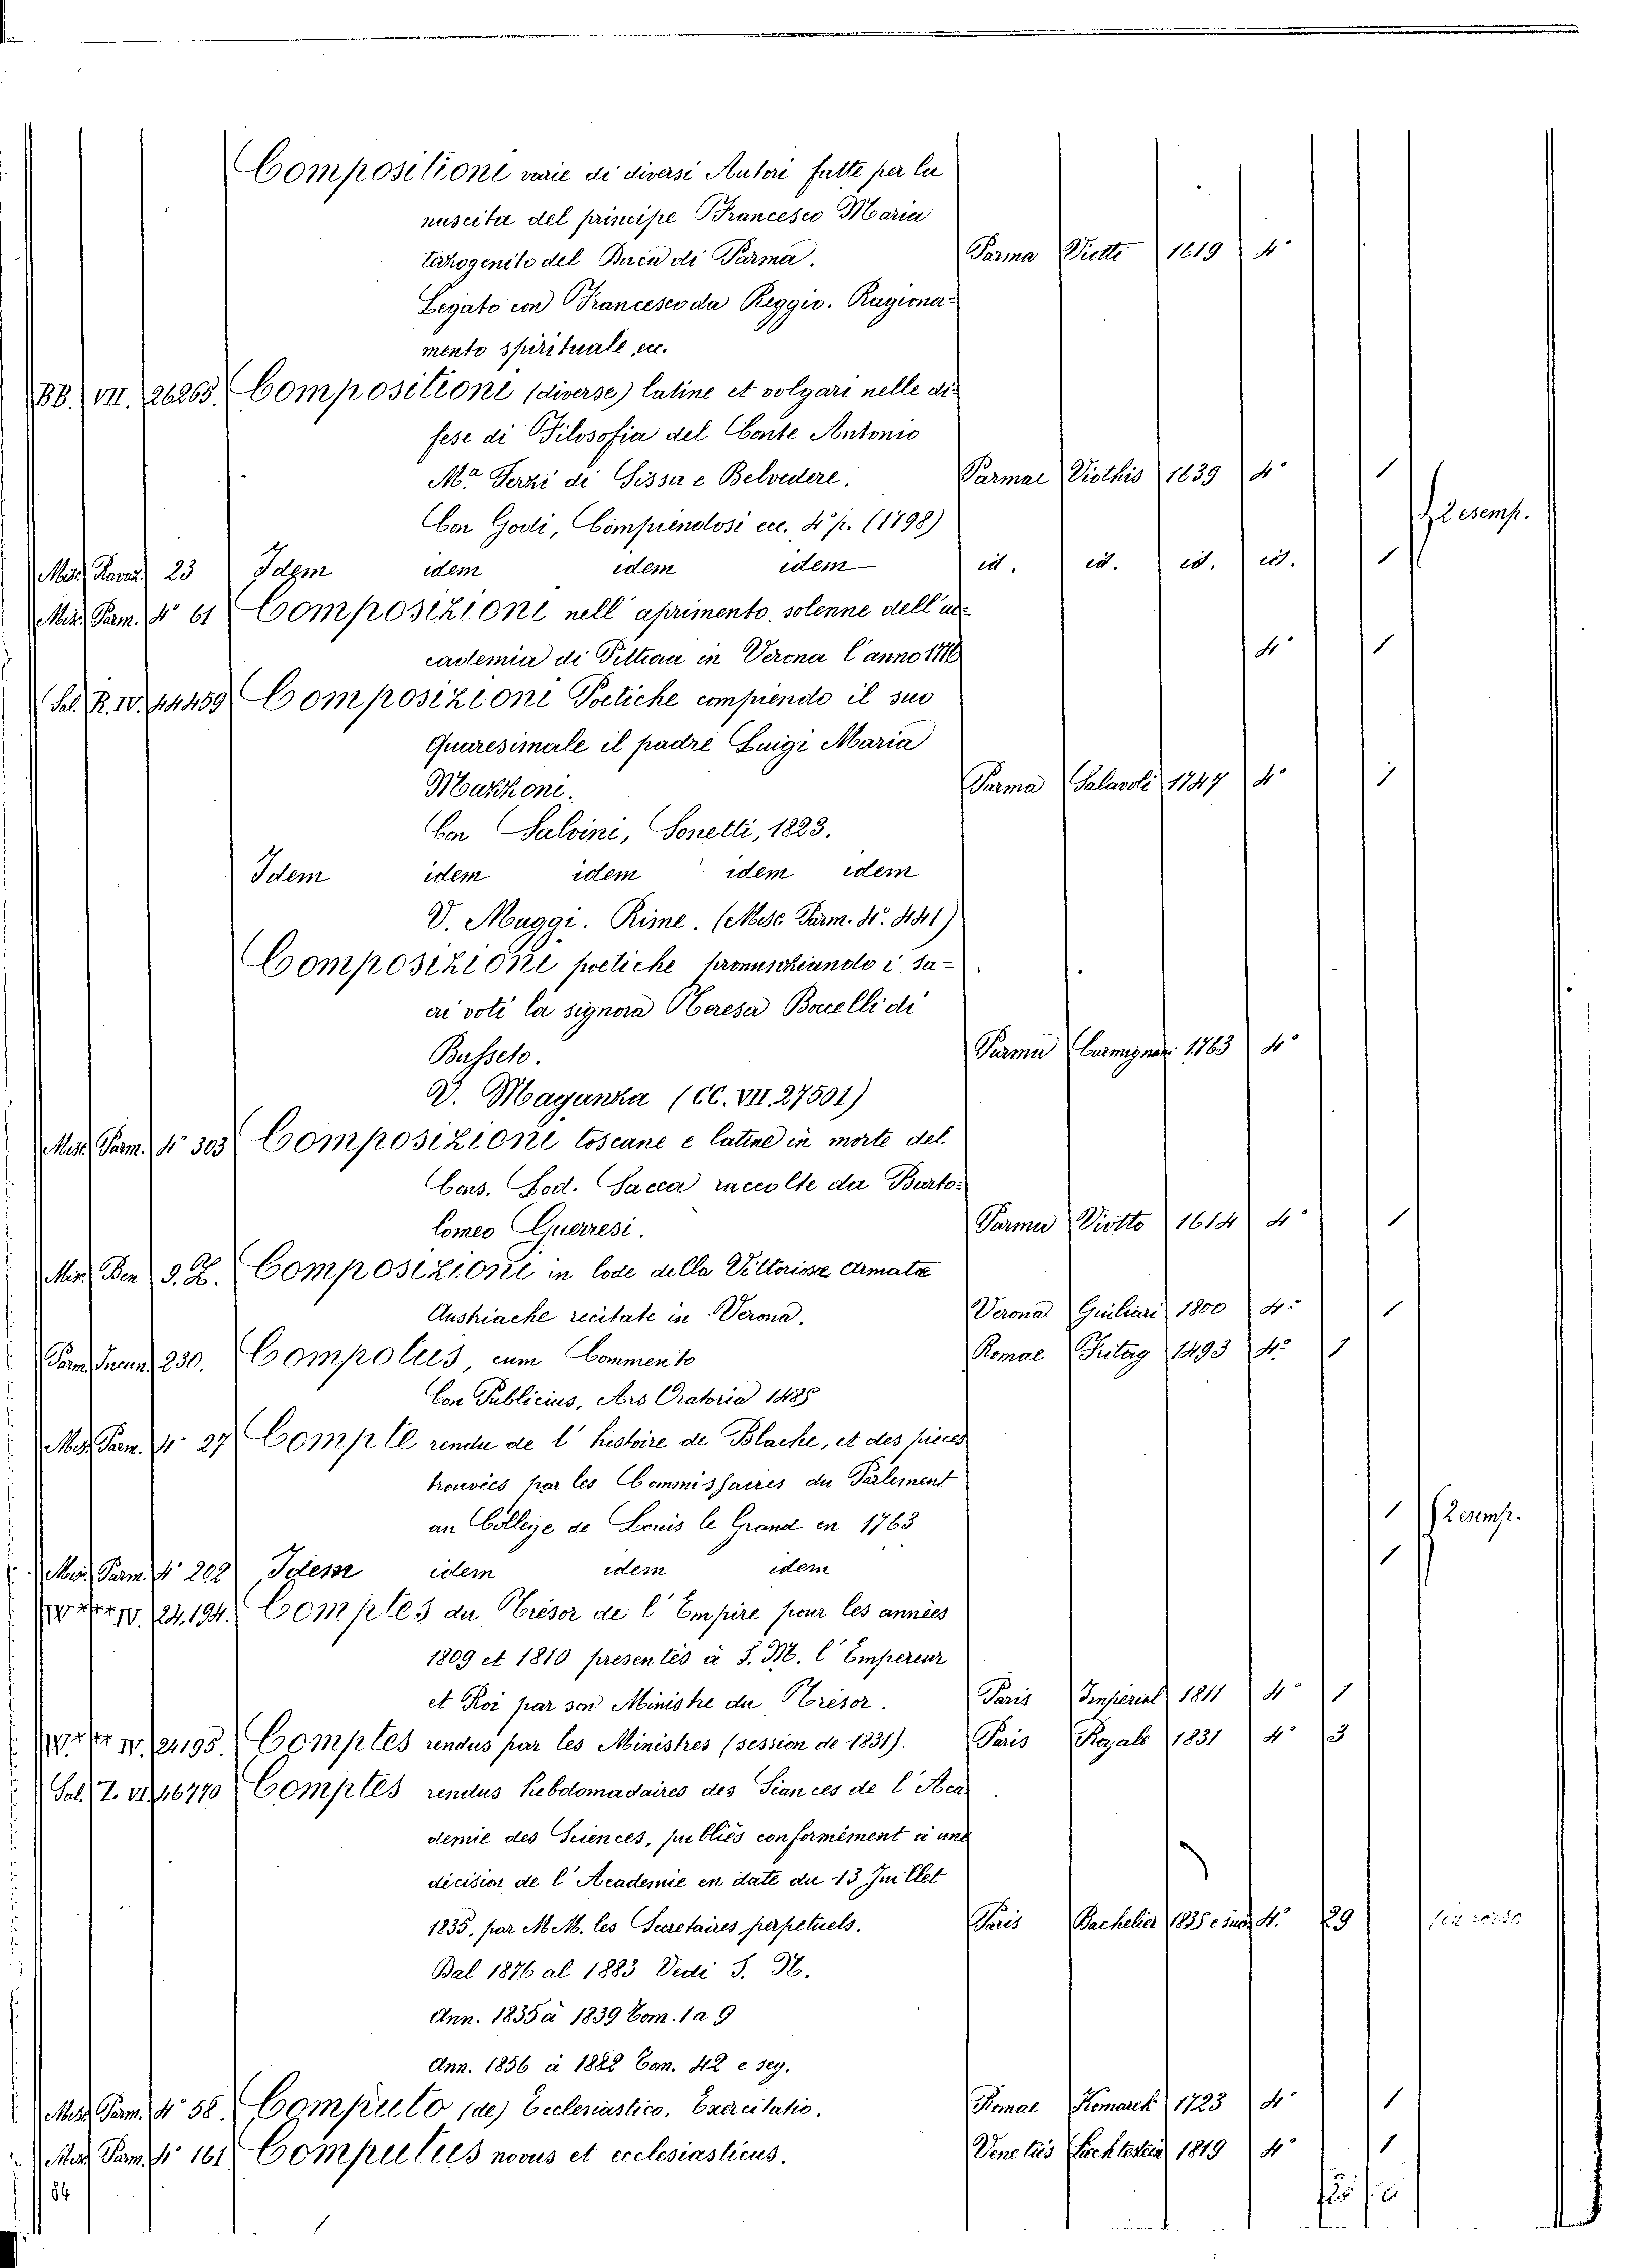 Compositioni varie di diversi Autori fatte per la
nascita del principe Francesco Maria
terzogenito del Duca di Parma. Parma Viotti 1619 4°
Legato con Francesco da Reggio. Ragiona-
mento spirituale, ecc.
BB. VII. 26265. Compositioni (diverse) latine et volgari nelle di-
fese di Filosofia del Conte Antonio
Mª Terzi di Sissa e Belvedere. Parmae Viothis 1639 4° 1
Con Godi, Compiendosi ecc. 4° p. (1798) 2 esemp.
Misc. 23 Idem idem idem idem id. id. id. id. 1
Misc. Parm. 4° 61 Composizioni nell' aprimento solenne dell' ac-
cademia di Pittura in Verona l'anno 1776 4° 1
Sal. R. IV. 44459 Composizioni Poetiche compiendo il suo
Quaresimale il padre Luigi Maria
Mazzoni. Parma 1747 4° 1
Con Salvini, Sonetti, 1823.
Idem idem idem idem idem
V. Maggi. Rime. (Misc. Parm. 4°. 441)
Composizioni poetiche pronunziando i sa-
cri voti la signora Teresa Bocelli di
Busseto. Parma Carmignani 1763 4°
V. Maganza (CC. VII. 27501)
Misc. Parm. 4° 303 Composizioni toscane e latine in morte del
Cons. Lod. Sacca raccolte da Barto-
lomeo Guerresi. Parma Viotto 1614 4° 1
Min. Ben 9. Z. Composizioni in lode della Vittoriose Armate
Austriache recitate in Verona. Verona Giuliari 1800 4° 1
Parm. Incun. 230. Compotus cum Commento Romae Fritag 1493 4° 1
Con Publicius, Ars Oratoria 1485
Misc. Parm. 4° 27 Compte rendu de l' histoire de Blache, et des pieces
trouvées par les Commissaires du Parlement
au College de Louis le Grand en 1763 1 2 esemp.
Misc. Parm. 4° 202 Idem idem idem idem 1
IV. 24,194. Comptes du Trésor de l' Empire pour les années
1809 et 1810 presentés à S. M. l' Empereur
et Roi par son Ministre du Trésor. Paris Impérial 1811 4° 1
IV. 24195. Comptes rendus par les Ministres (session de 1831). Paris Royale 1831 4° 3
Sal. Z. VI. 46770 Comptes rendus hebdomadaires des Séances de l' Aca-
demie des Sciences, publiés conformément à une
décision de l' Academie en date du 13 Juillet
1835, par M.M. les Secretaires perpetuels. Paris Bachelier 1835 e 4° 29
Dal 1876 al 1883 Vedi S. H.
Ann. 1835 à 1839 Tom. 1 a 9
Ann. 1856 à 1882 Tom. 42 e seg.
Misc. Parm. 4° 58 Computo (de) Ecclesiastico. Exercitatio. Romae Komarek 1723 4° 1
Misc. Parm. 4° 161 Computus novus et ecclesiasticus. Venetiis 1819 4° 1
84